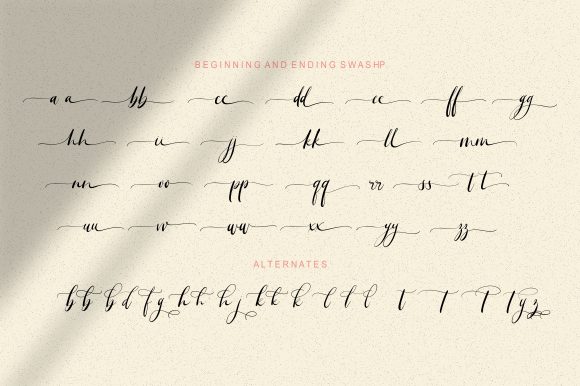 BEGINNING AND ENDING SWASHP.
a a bb cc dd ee ff gg
hh ii jj kk ll mm
nn oo pp qq rr ss t t
uu vv ww xx yy zz
ALTERNATES
b b b d f g h h h j k k k l l l t